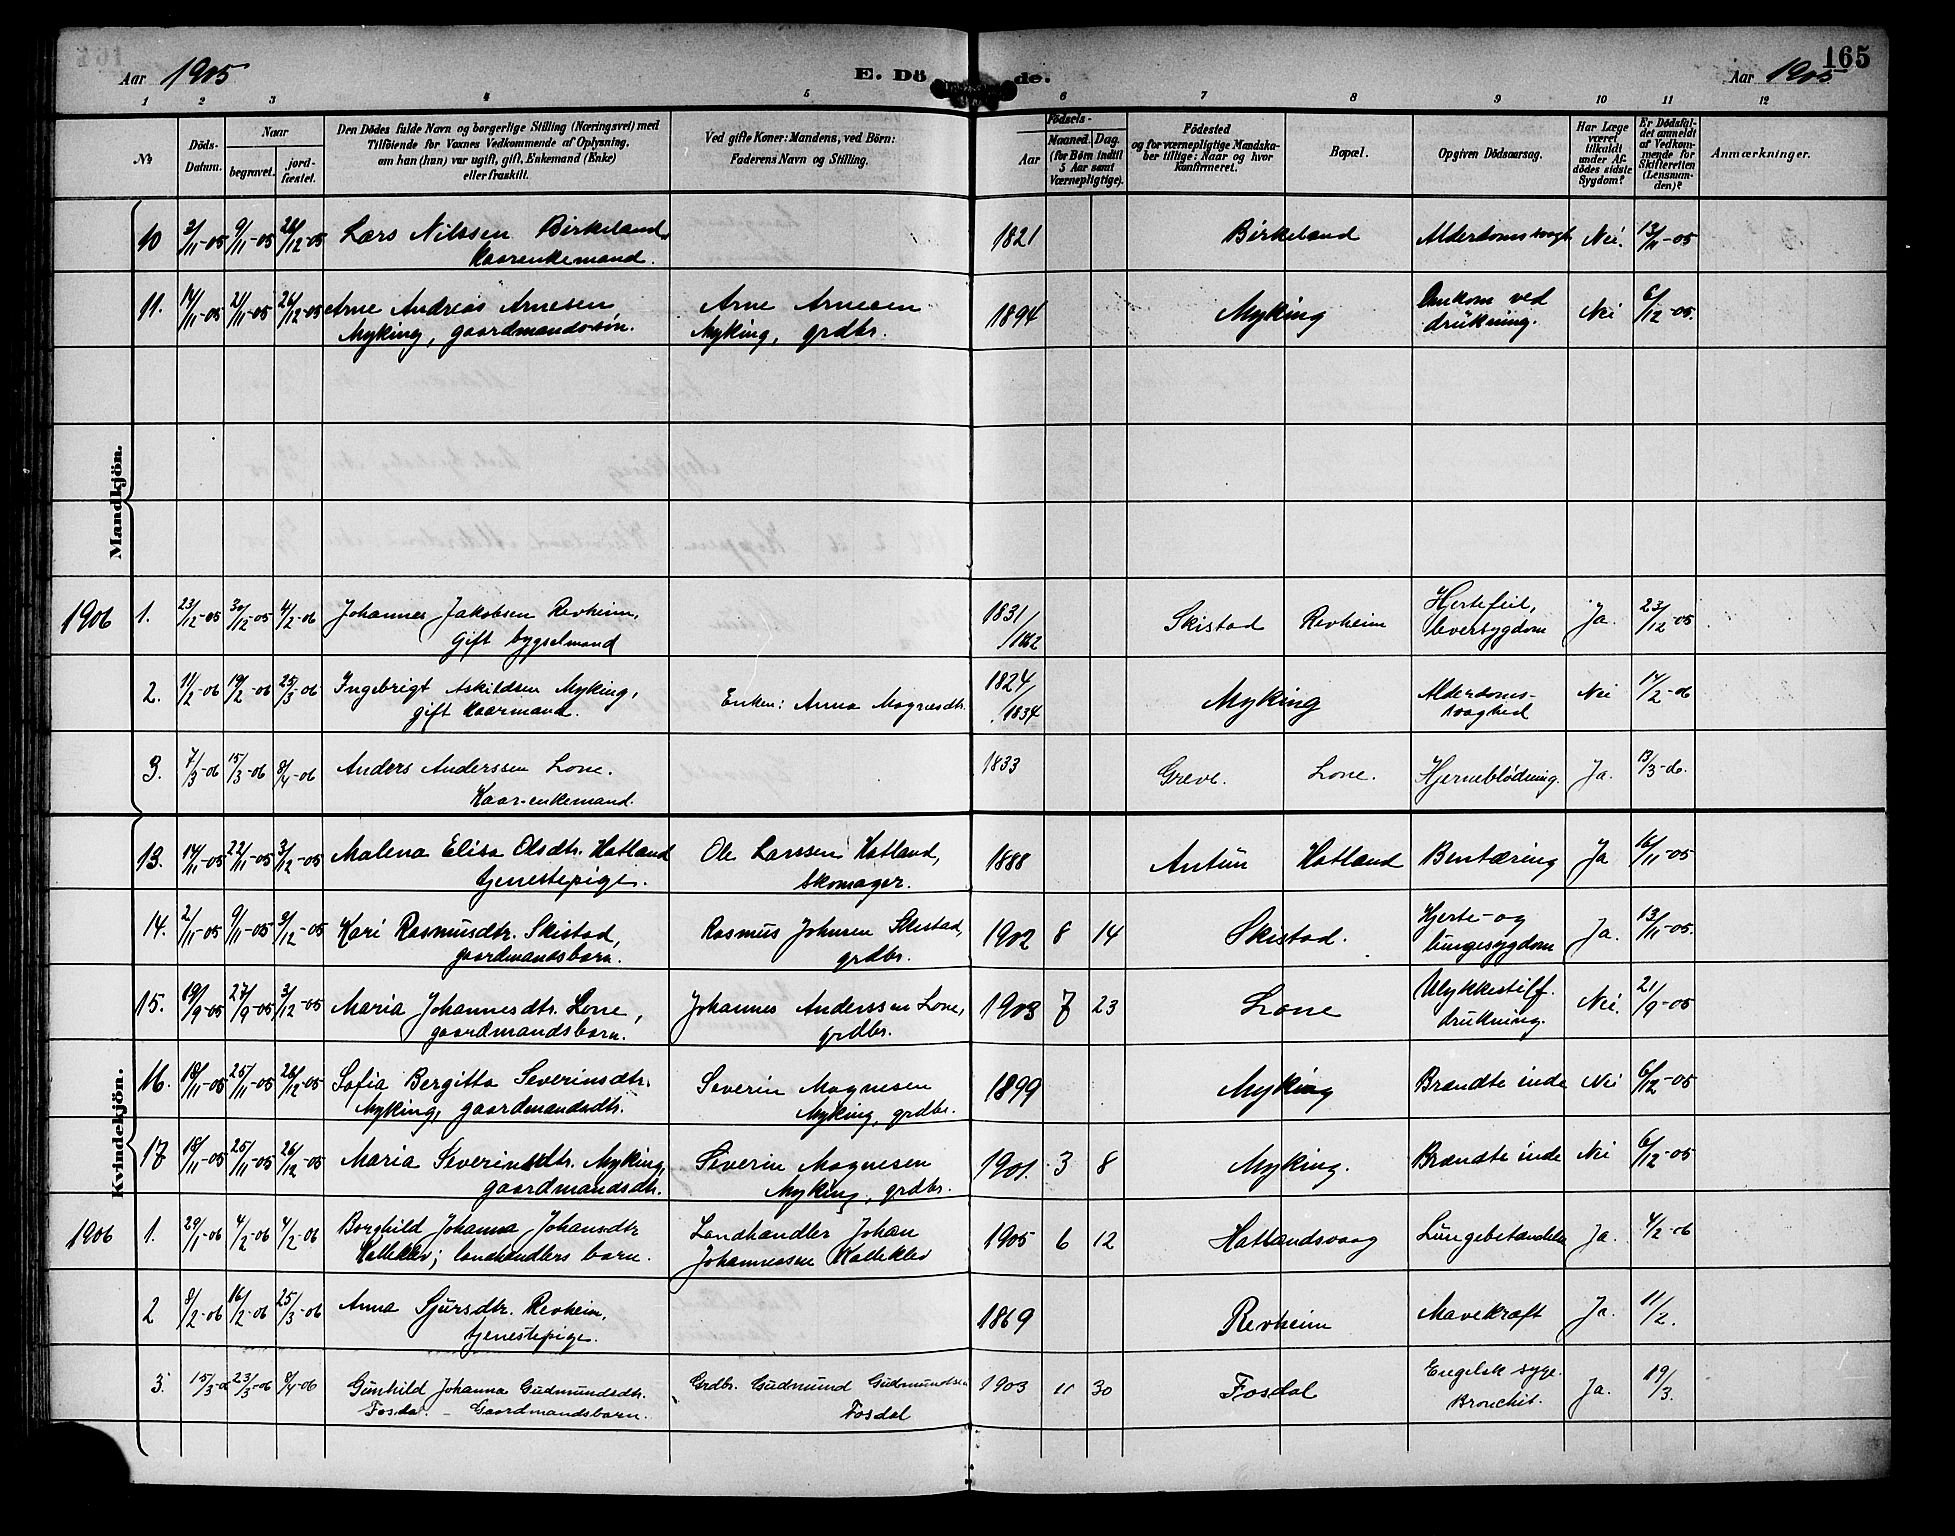 165
Aar 1905 E. Döde. Aar 1905
1 2 3 4 5 6 7 8 9 10 11 12
No
Döds-Datum.
Naar
begravet.
jord-fæstet.
Den Dödes fulde Navn og borgerlige Stilling (Næringsvei) med
Tilföiende for Voxnes Vedkommende af Oplysning,
om han (hun) var ugift, gift, Enkemand (Enke)
eller fraskilt.
Ved gifte Koner: Mandens, ved Börn:
Faderens Navn og Stilling.
Födsels-
Aar
Maaned. Dag.
(for Börn indtil
5 Aar samt
Værnepligtige).
Födested
og for værnepligtige Mandska-
ber tillige: Naar og hvor
konfirmeret.
Bopæl.
Opgiven Dödsaarsag.
Har Læge
været
tilkaldt
under Af-
dödes sidste
Sygdom?
Er Dödsfal-
det anmeldt
af Vedkom-
mende for
Skifteretten
(Lensman-
den)?
Anmærkninger.
Mandkjön.
10 2/11-05 9/11-05 26/12-05 Lars Nilssen Birkeland, 1821 Birkeland Alderdomssvagh. Nei. 13/11-05
Kaarenkemand.
11. 14/11-05 21/11-05 26/12-05 Arne Andreas Arnesen Arne Arnesen 1894 Myking Omkom ved Nei 6/12-05.
Myking, gaardmandssøn. Myking, grdbr. drukning.
1906 1. 23/12-05 30/12-05 4/2-06 Johannes Jakobsen Revheim, 1831/1832 Skistad Revheim Hjertefeil, Ja. 23/12-05
gift bygselmand leversygdom
2. 11/2-06 19/2-06 25/3-06 Ingebrigt Askildsen Myking, Enken: Anna Magnesdtr. 1824/1834 Myking Alderdoms- Nei 14/2-06
gift kaarmand. svaghed
3. 7/3-06 15/3-06 8/4-06 Anders Anderssen Lone. 1833 Greve. Lone. Hjerneblødning. Ja. 13/3-06.
Kaar-enkemand.
Kvindekjön.
13. 14/11-05 22/11-05 3/12-05 Malena Elisa Olsdtr. Hatland Ole Larssen Hatland, 1888 Antun Hatland Bentæring Ja 16/11-05
tjenestepige. Skomager.
14. 2/11-05 9/11-05 3/12-05 Kari Rasmusdtr. Skistad, Rasmus Johnsen Skistad, 1902 8 14 Skistad. Hjerte- og Ja. 13/11-05.
gaardmandsbarn. grdbr. lungesygdom
15. 19/9-05 27/9-05 3/12-05 Maria Johannesdtr. Lone, Johannes Anderssen Lone, 1903 7 23 Lone Ulykkestilf. Nei. 21/9-05
gaardmandsbarn. grdbr. drukning.
16. 18/11-05 25/11-05 26/12-05 Sofia Bergitta Severinsdtr. Severin Magnesen 1899 Myking Brændte inde Nei 6/12-05
Myking, gaardmandsdtr. Myking, grdbr.
17 18/11-05 25/11-05 26/12-05 Maria Severinsdtr. Myking, Severin Magnesen 1901. 3 8 Myking. Brændte inde Nei 6/12-05
gaardmandsdtr. Myking, grdbr.
1906 1. 29/1-06 4/2-06 4/2-06 Borghild Johanna Johansdtr Landhandler Johan 1905 6 12 Hatlandsvaag Lungebetændelse Ja. 4/2-06
Kalleklev; landhandlers barn. Johannessen Kalleklev
2 8/2-06 16/2-06 25/3-06 Anna Sjursdtr. Revheim, 1869 Revheim Mavekræft Ja. 11/2.
tjenestepige.
3. 15/3-06 23/3-06 8/4-06 Gunhild Johanna Gudmundsdtr. Grdbr. Gudmund Gudmundsen 1903 11 30 Fosdal Engelsk syge. Ja. 19/3.
Fosdal. - Gaardmandsbarn. Fosdal Bronchit.